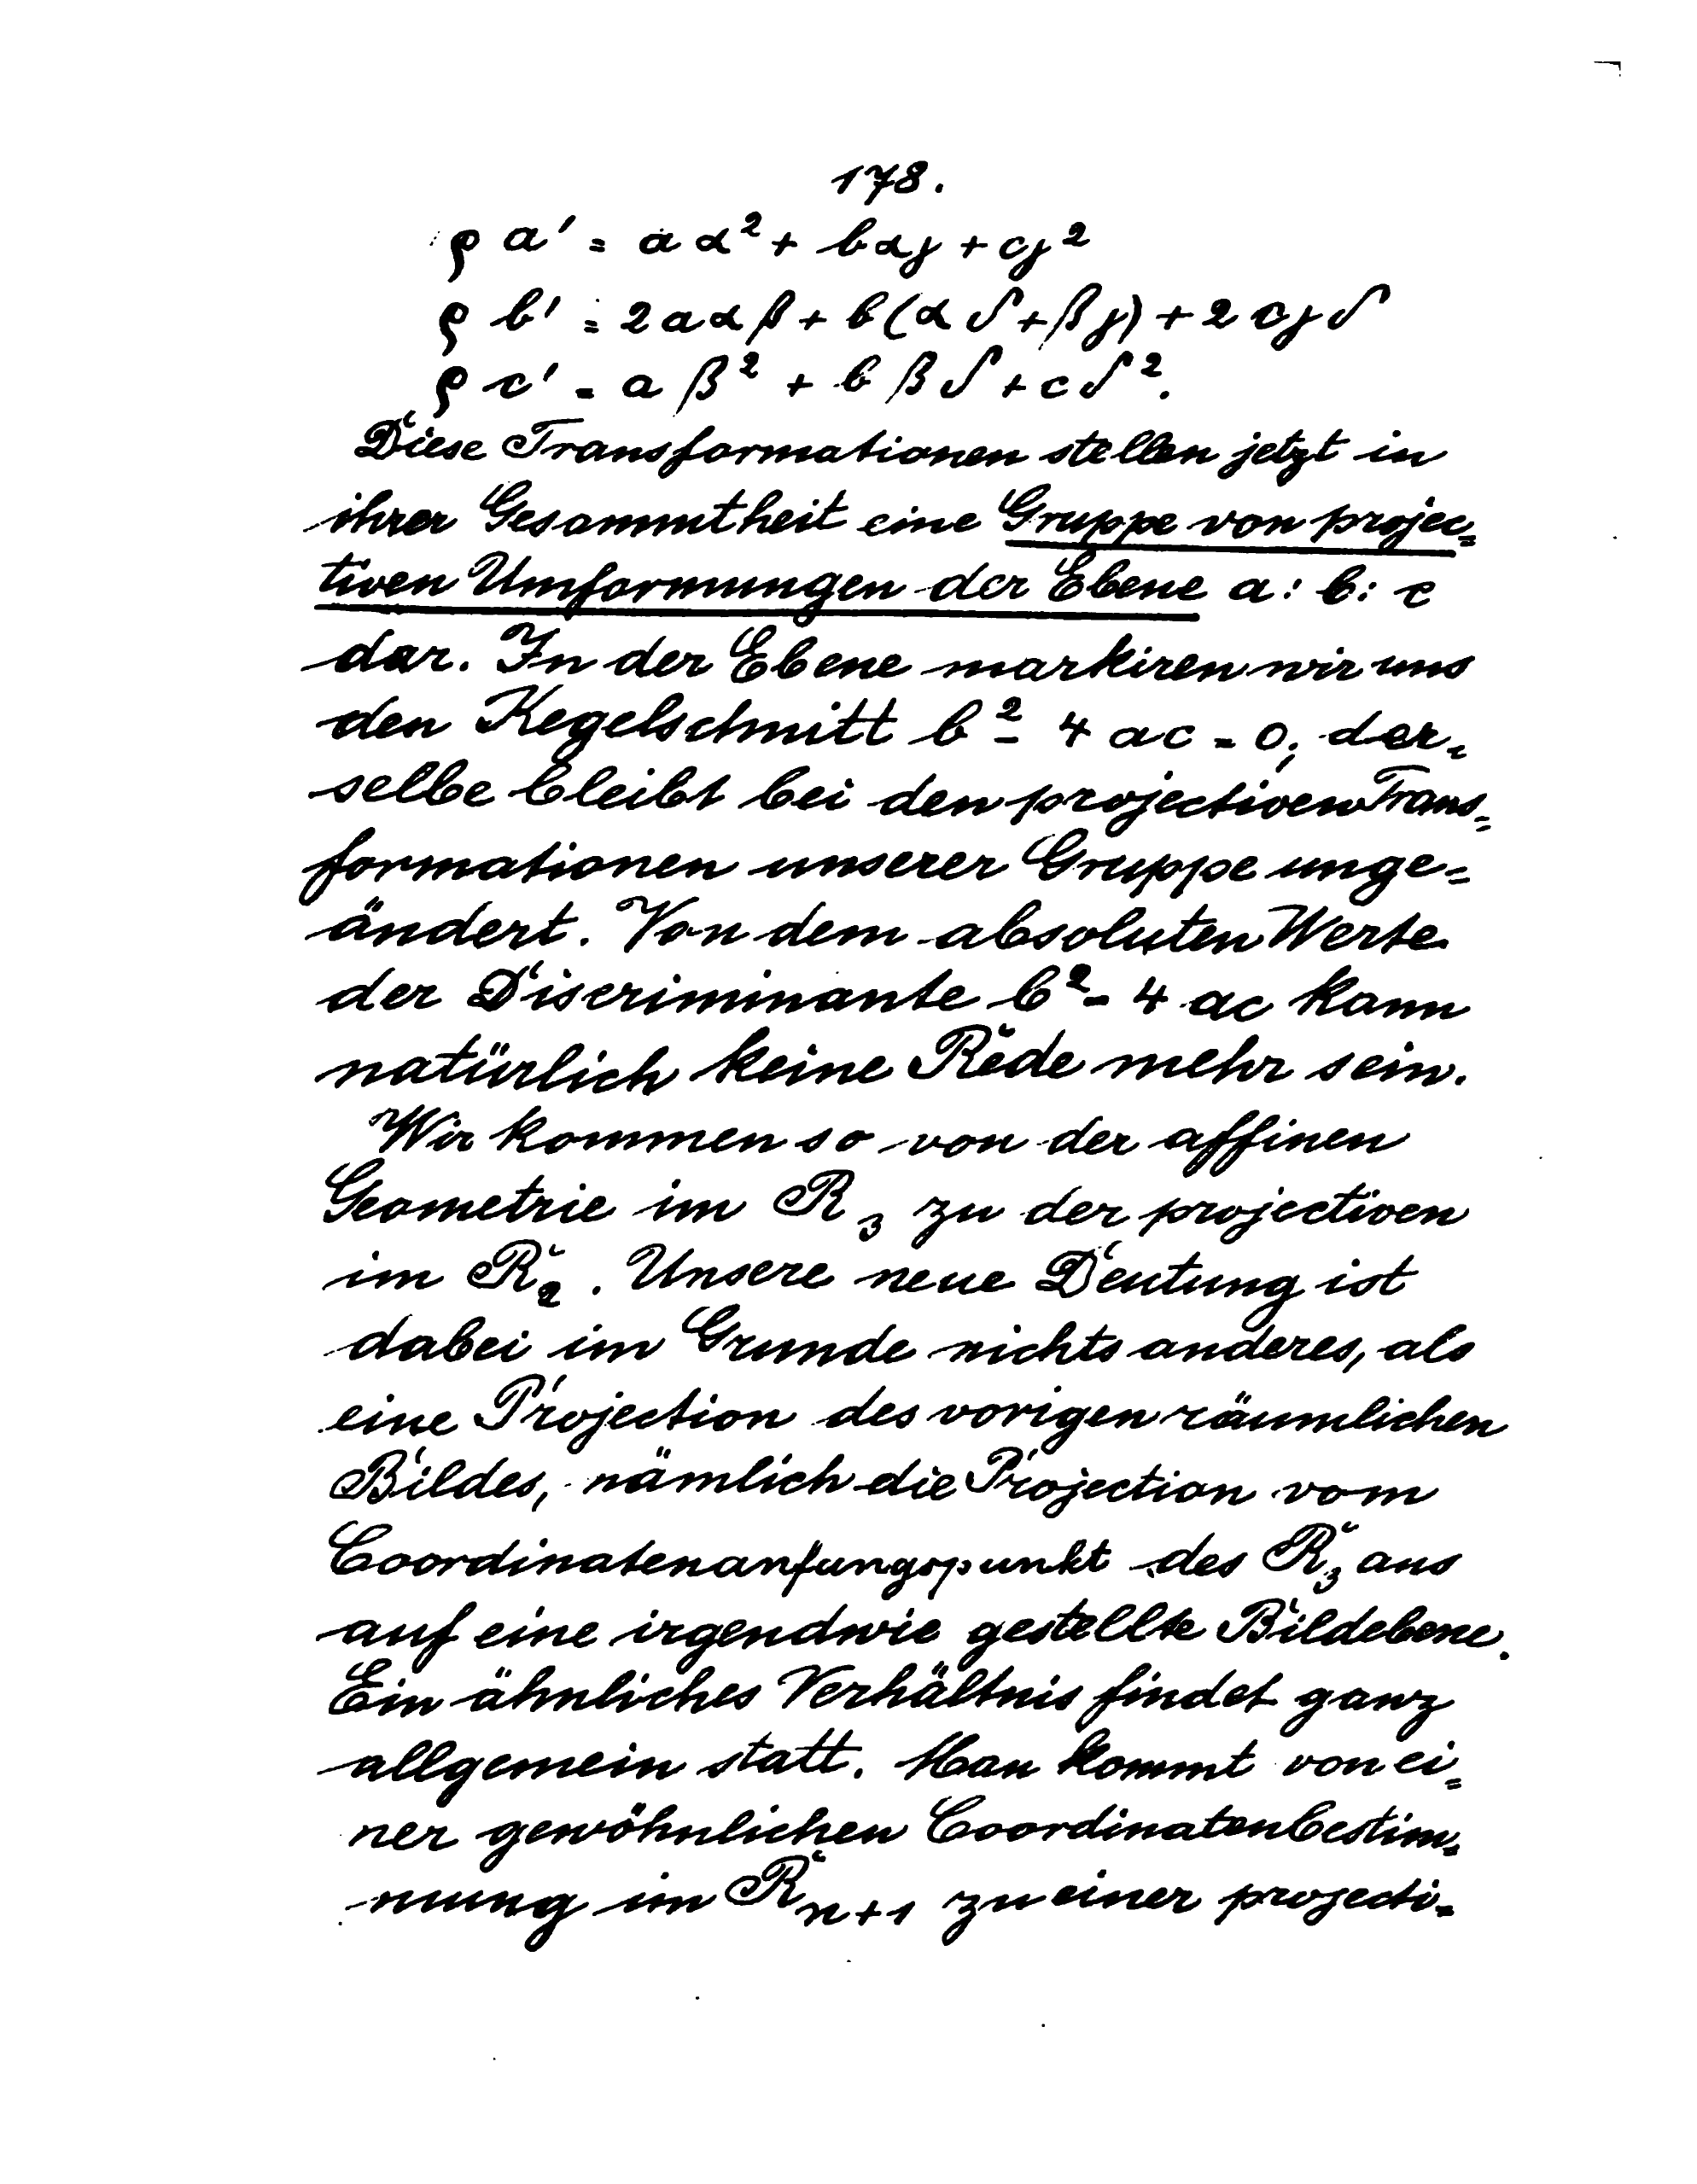 178.
ρ a' = a α² + b α γ + c γ²
ρ b' = 2 a α β + b (α δ + β γ) + 2 c γ δ
ρ c' = a β² + b β δ + c δ².
Diese Transformationen stellen jetzt in
ihrer Gesammtheit eine Gruppe von projec=
tiven Umformungen der Ebene a : b : c
dar. In der Ebene markiren wir uns
den Kegelschnitt b² - 4 ac = 0; der=
selbe bleibt bei den projectiven Trans=
formationen unserer Gruppe unge=
ändert. Von dem absoluten Werte
der Discriminante b² - 4 ac kann
natürlich keine Rede mehr sein.
Wir kommen so von der affinen
Geometrie im R₃ zu der projectiven
im R₂. Unsere neue Deutung ist
dabei im Grunde nichts anderes, als
eine Projection des vorigen räumlichen
Bildes, nämlich die Projection vom
Coordinatenanfangspunkt des R₃ aus
auf eine irgendwie gestellte Bildebene.
Ein ähnliches Verhältnis findet ganz
allgemein statt. Man kommt von ei=
ner gewöhnlichen Coordinatenbestim=
mung im Rₙ₊₁ zu einer projecti=